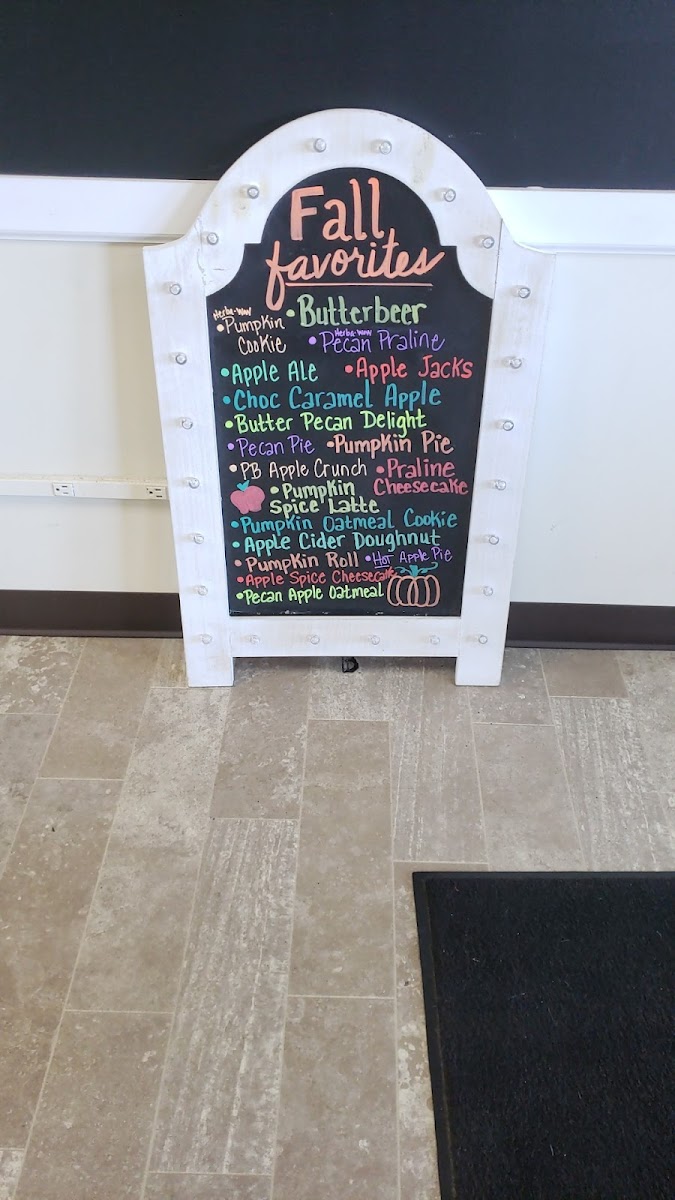 Fall
favorites
Herba-WOW
• Pumpkin
Cookie
• Butterbeer
Herba-WOW
• Pecan Praline
• Apple Ale
• Apple Jacks
• Choc Caramel Apple
• Butter Pecan Delight
• Pecan Pie • Pumpkin Pie
• PB Apple Crunch
• Praline
Cheesecake
• Pumpkin
Spice Latte
• Pumpkin Oatmeal Cookie
• Apple Cider Doughnut
• Pumpkin Roll • Hot Apple Pie
• Apple Spice Cheesecake
• Pecan Apple Oatmeal